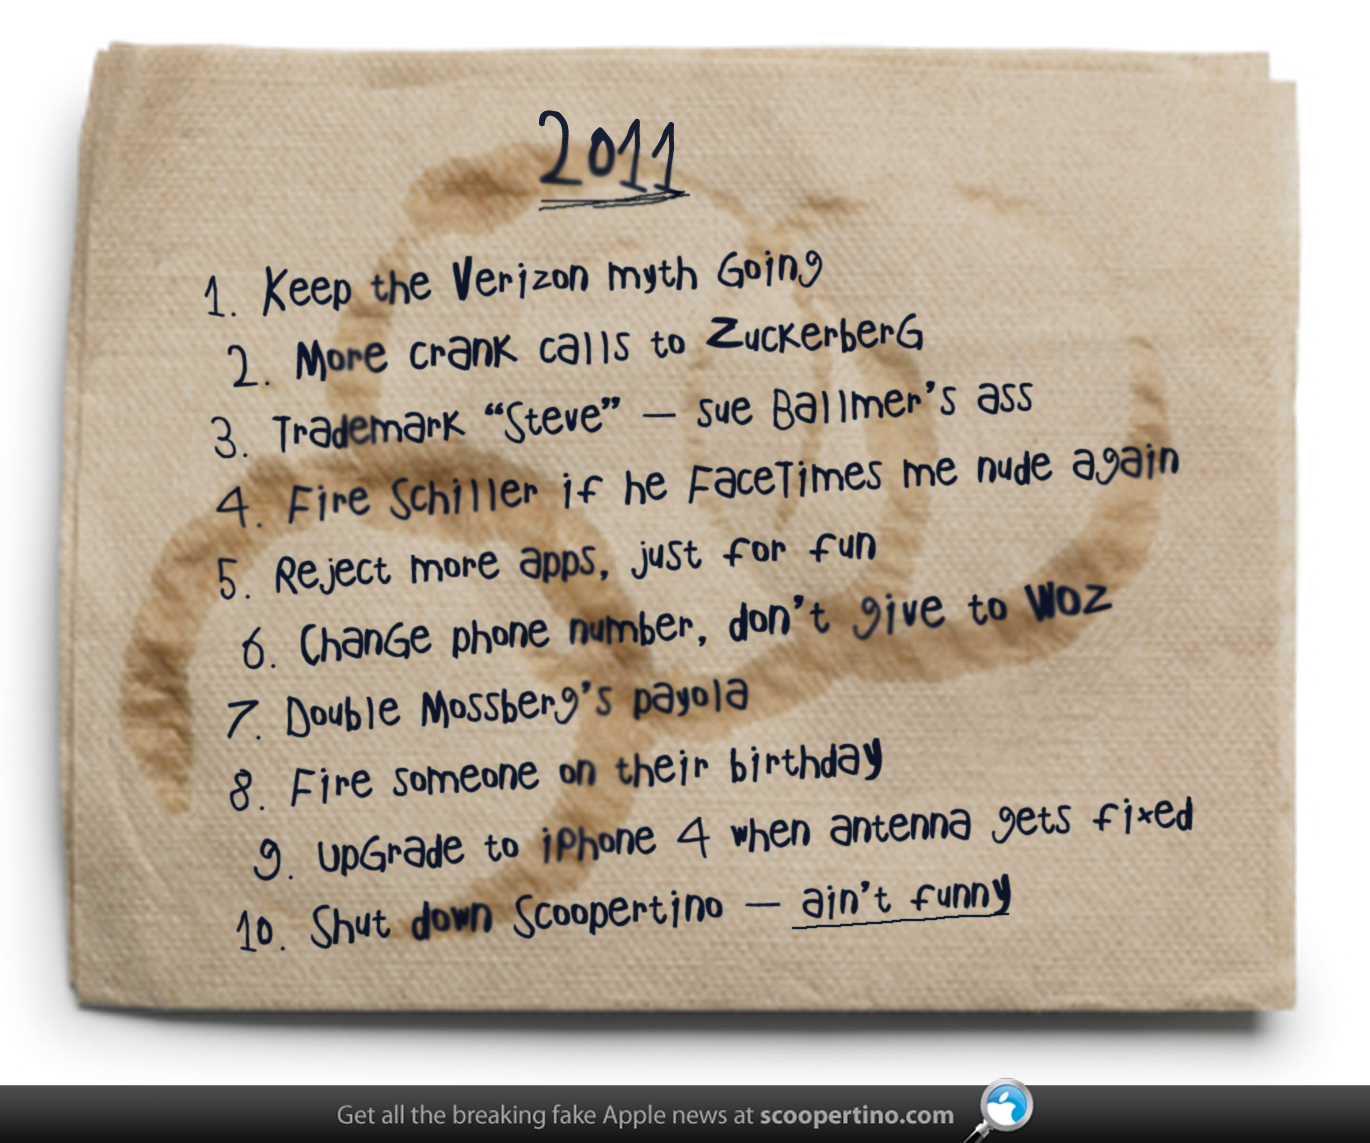 2011
1. Keep the Verizon myth Going
2. More crank calls to ZuckerberG
3. Trademark “Steve” — sue Ballmer's ass
4. Fire Schiller if he FaceTimes me nude again
5. Reject more apps, just for fun
6. ChanGe phone number, don't give to Woz
7. Double Mossberg's payola
8. Fire someone on their birthday
9. upGrade to iPhone 4 when antenna gets fixed
10. Shut down Scoopertino — ain't funny
Get all the breaking fake Apple news at scoopertino.com